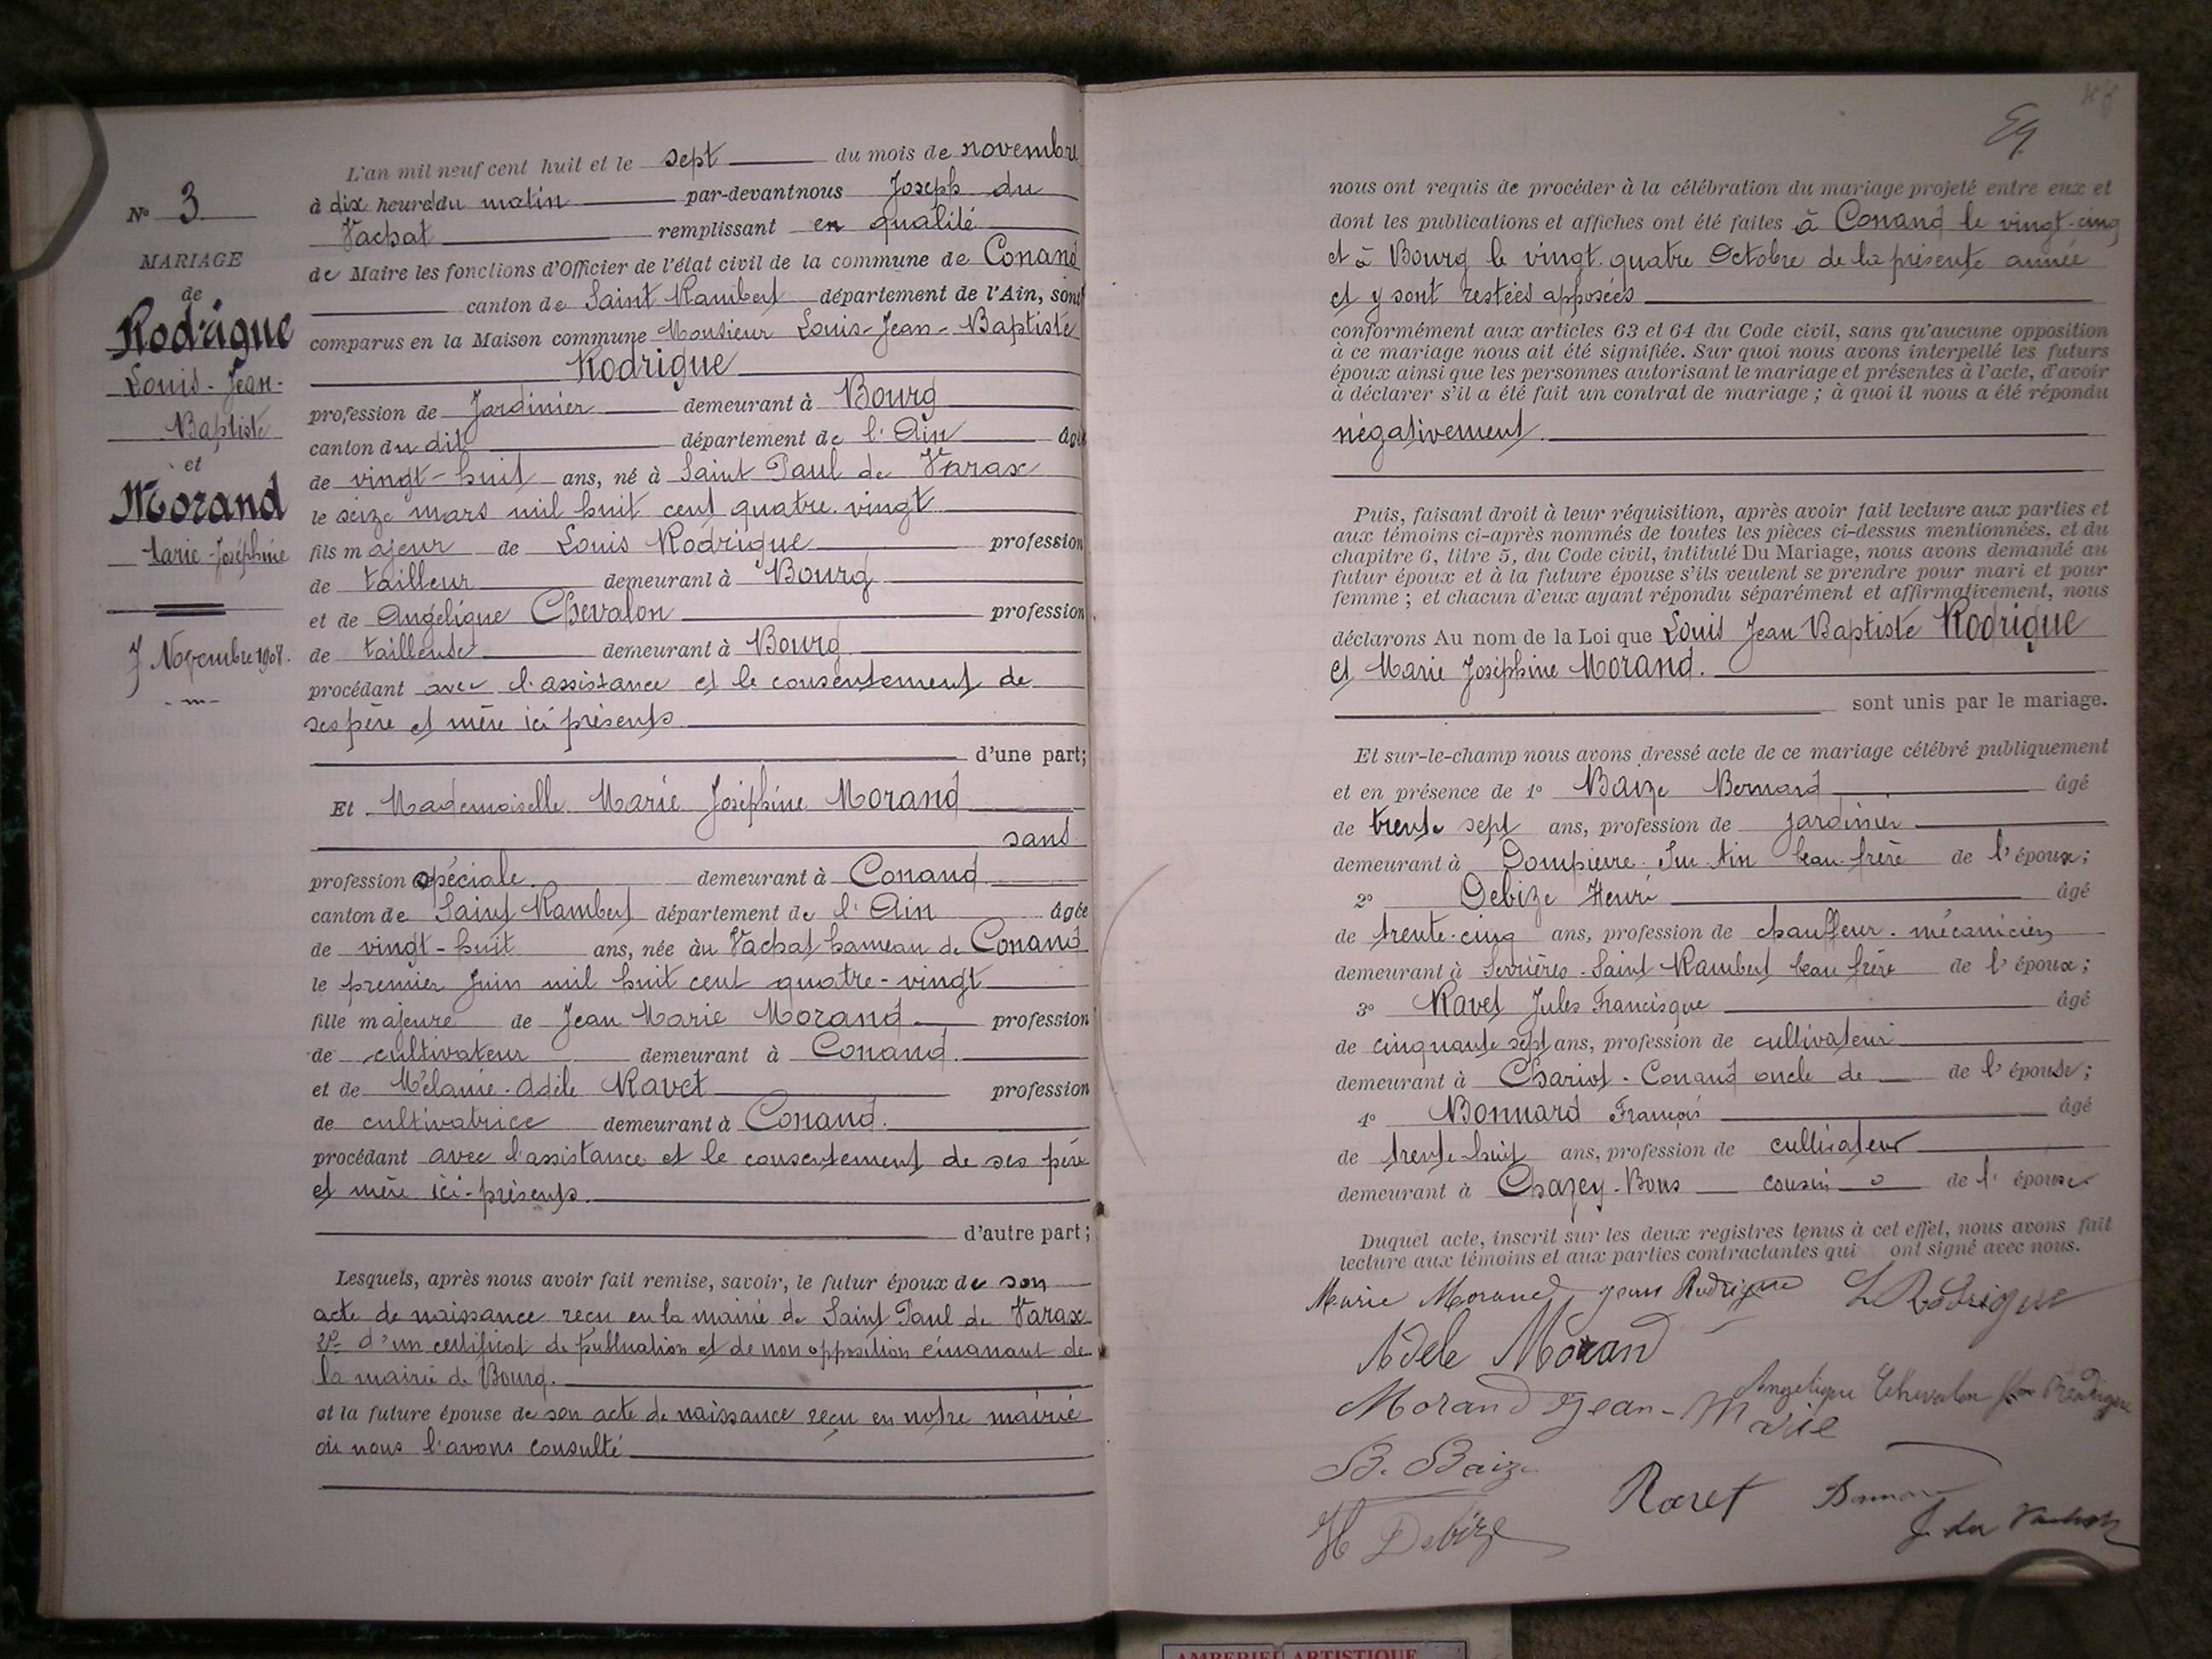 N° 3
MARIAGE
de
Rodrigue
Louis-Jean-
Baptiste
et
Morand
Marie-Joséphine
7 Novembre 1908.
L'an mil neuf cent huit et le sept du mois de novembre
à dix heure du matin par-devant nous Joseph du
Vachat remplissant en qualité
de Maire les fonctions d'Officier de l'état civil de la commune de Conand
canton de Saint Rambert département de l'Ain, sont
comparus en la Maison commune Monsieur Louis-Jean-Baptiste
Rodrigue
profession de Jardinier demeurant à Bourg
canton du dit département de l'Ain âgé
de vingt-huit ans, né à Saint Paul de Varax
le seize mars mil huit cent quatre vingt
fils majeur de Louis Rodrigue profession
de tailleur demeurant à Bourg
et de Angélique Chevalon profession
de tailleuse demeurant à Bourg
procédant avec l'assistance et le consentement de
ses père et mère ici présents
d'une part;
Et Mademoiselle Marie Joséphine Morand
sans
profession spéciale. demeurant à Conand
canton de Saint Rambert département de l'Ain âgée
de vingt-huit ans, née àu Vachat hameau de Conand
le premier Juin mil huit cent quatre-vingt
fille majeure de Jean Marie Morand profession
de cultivateur demeurant à Conand.
et de Mélanie-Adèle Ravet profession
de cultivatrice demeurant à Conand.
procédant avec l'assistance et le consentement de ses père
et mère ici-présents.
d'autre part;
Lesquels, après nous avoir fait remise, savoir, le futur époux de son
acte de naissance reçu en la mairie de Saint Paul de Varax
2° d'un certificat de publication et de non opposition émanant de
la mairie de Bourg.
et la future épouse de son acte de naissance reçu en notre mairie
où nous l'avons consulté
nous ont requis de procéder à la célébration du mariage projeté entre eux et
dont les publications et affiches ont été faites à Conand le vingt-cinq
et à Bourg le vingt-quatre Octobre de la présente année
et y sont restées apposées
conformément aux articles 63 et 64 du Code civil, sans qu'aucune opposition
à ce mariage nous ait été signifiée. Sur quoi nous avons interpellé les futurs
époux ainsi que les personnes autorisant le mariage et présentes à l'acte, d'avoir
à déclarer s'il a été fait un contrat de mariage; à quoi il nous a été répondu
négativement.
Puis, faisant droit à leur réquisition, après avoir fait lecture aux parties et
aux témoins ci-après nommés de toutes les pièces ci-dessus mentionnées, et du
chapitre 6, titre 5, du Code civil, intitulé Du Mariage, nous avons demandé au
futur époux et à la future épouse s'ils veulent se prendre pour mari et pour
femme; et chacun d'eux ayant répondu séparément et affirmativement, nous
déclarons Au nom de la Loi que Louis Jean Baptiste Rodrigue
et Marie Joséphine Morand.
sont unis par le mariage.
Et sur-le-champ nous avons dressé acte de ce mariage célébré publiquement
et en présence de 1° Baize Bernard âgé
de trente sept ans, profession de jardinier
demeurant à Dompierre-Sur-Ain beau-frère de l'époux;
2° Debize Henri âgé
de trente-cinq ans, profession de chauffeur-mécanicien
demeurant à Serrières-Saint Rambert beau frère de l'époux;
3° Ravet Jules Francisque âgé
de cinquante sept ans, profession de cultivateur
demeurant à Charivt-Conand oncle de de l'épouse;
4° Bonnard François âgé
de trente-huit ans, profession de cultivateur
demeurant à Chazey-Bons cousin de l'épouse
Duquel acte, inscrit sur les deux registres tenus à cet effet, nous avons fait
lecture aux témoins et aux parties contractantes qui ont signé avec nous.
Marie Morand Jean Rodrigue L Rodrigue
Adele Moran
Morand Jean-Marie
Angelique Chevalon
B. Baize
Ravet
H Debize
J. du Vachat
AMBERIEU ARTISTIQUE